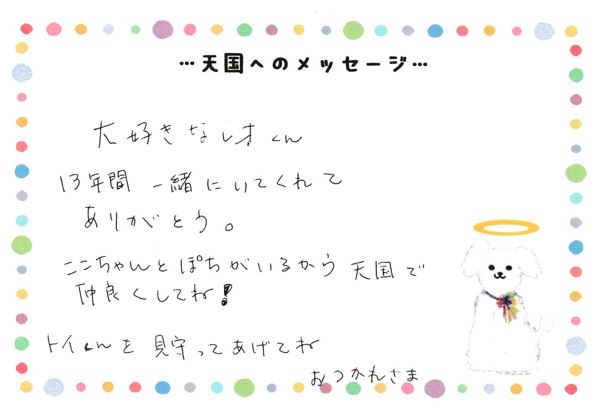 …天国へのメッセージ…
大好きなレオくん
13年間 一緒にいてくれて
ありがとう。
ここちゃんとぽちがいるから 天国で
仲良くしてね!
トイくんを 見守ってあげてね
おつかれさま